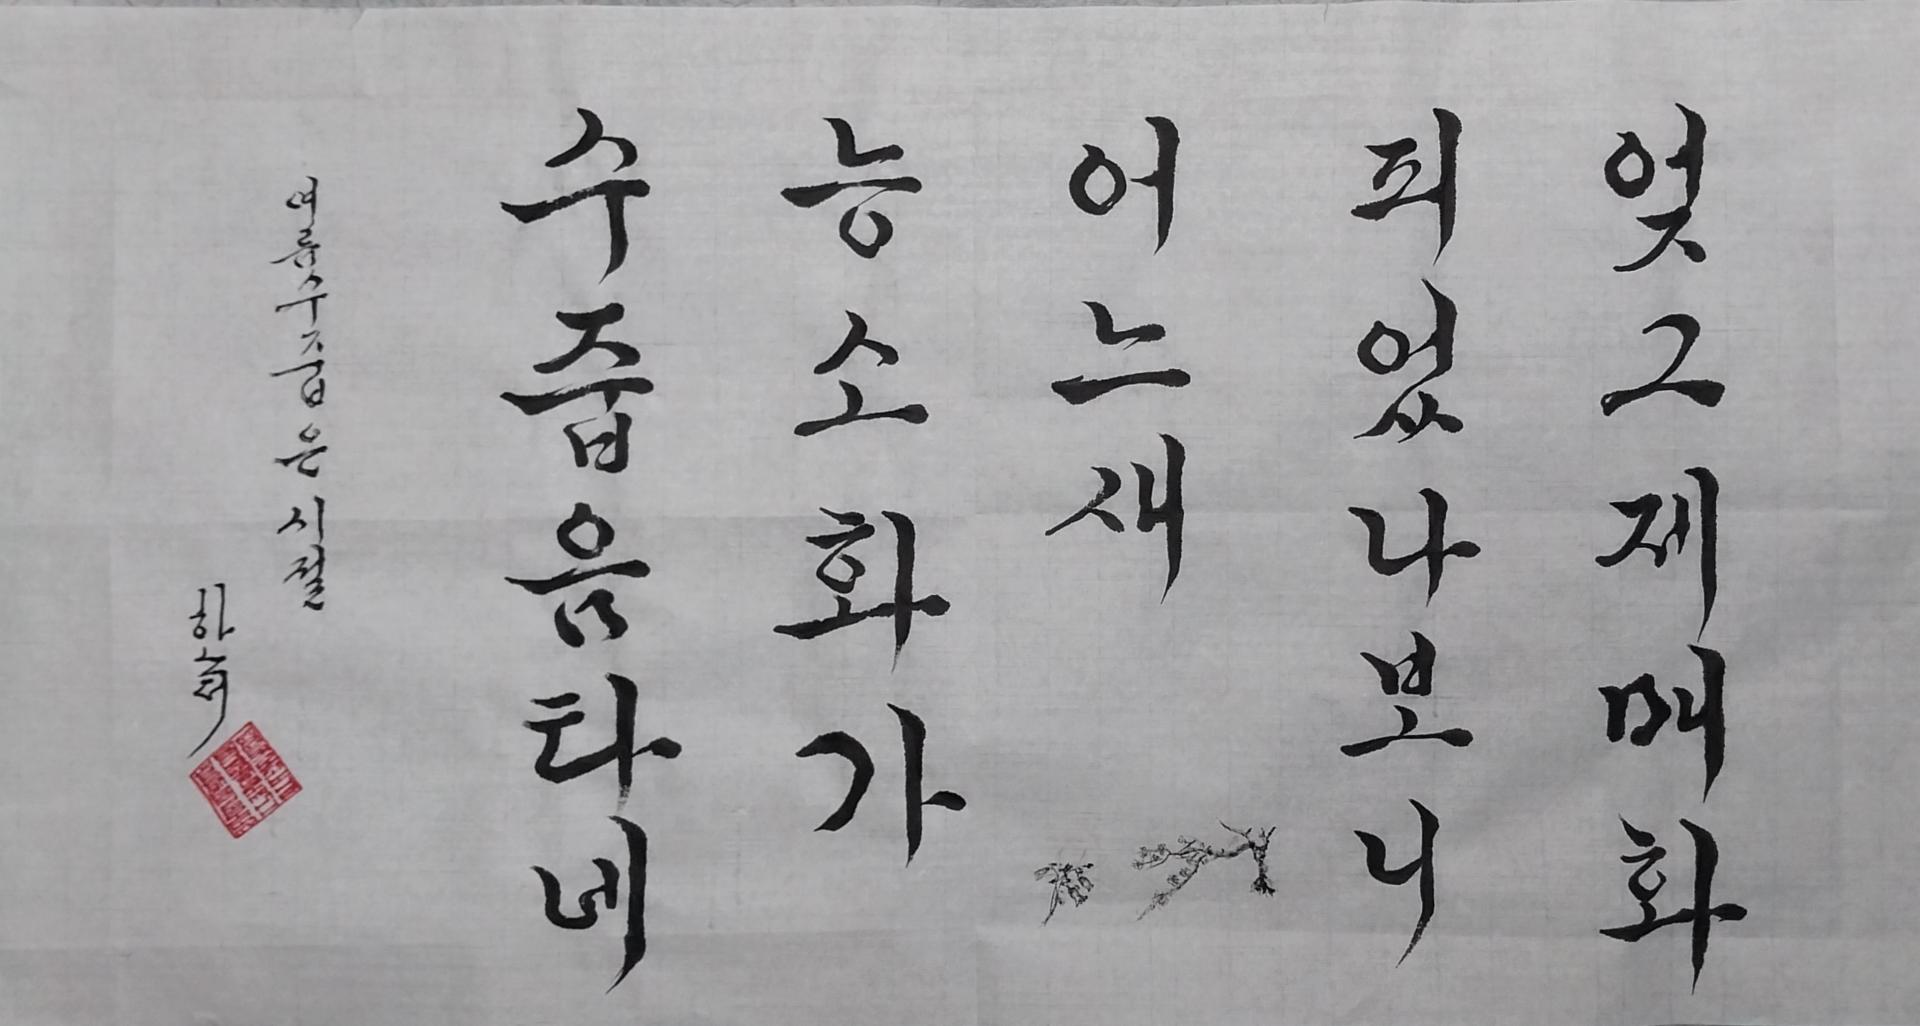 엊그제매화
피었나보니
어느새
능소화가
수줍음타네
여름수줍은시절